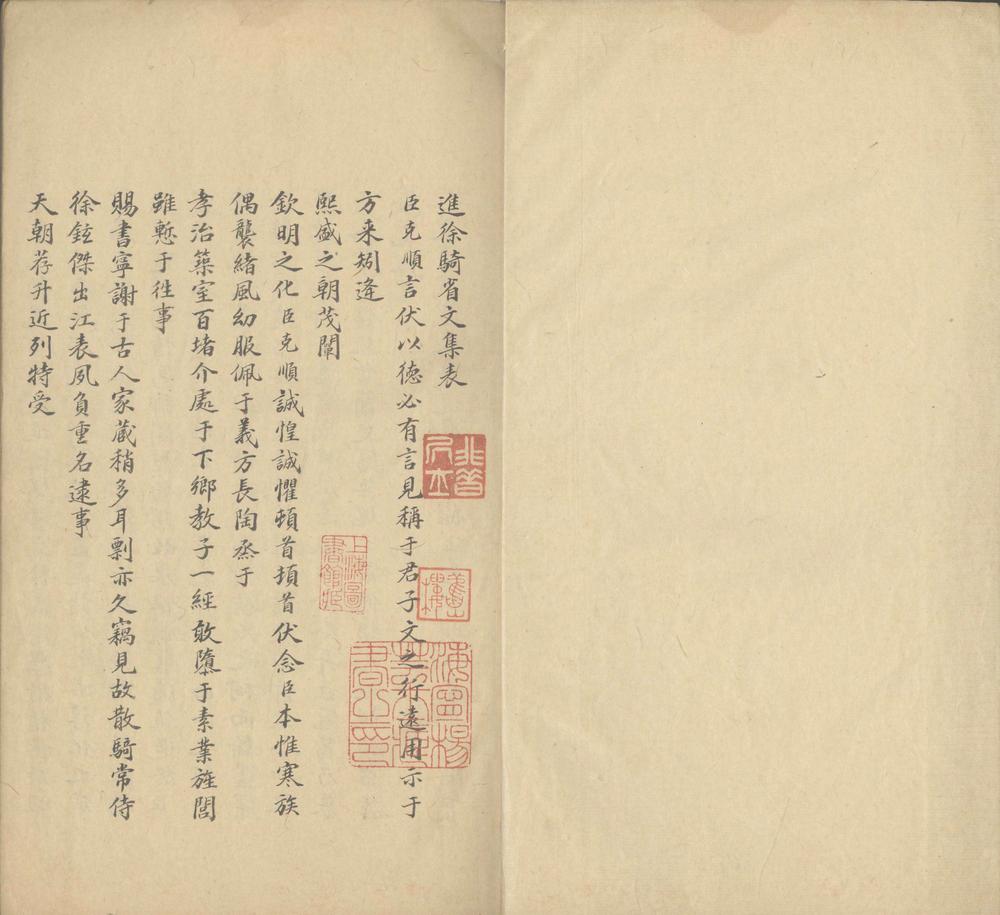 進徐騎省文集表
臣克順言伏以德必有言見稱于君子文之行遠用示于
方来矧逄
熙盛之朝茂闡
欽明之化臣克順誠惶誠懼頓首頓首伏念臣本惟寒族
偶襲緒風幼服佩于義方長陶烝于
孝治築室百堵介處于下鄉教子一經敢隳于素業旌閭
雖慙于徃事
賜書寧謝于古人家蔵稍多耳剽亦久竊見故散騎常侍
徐鉉傑出江表夙負重名逮事
天朝荐升近列特受
上海圖書館蔵